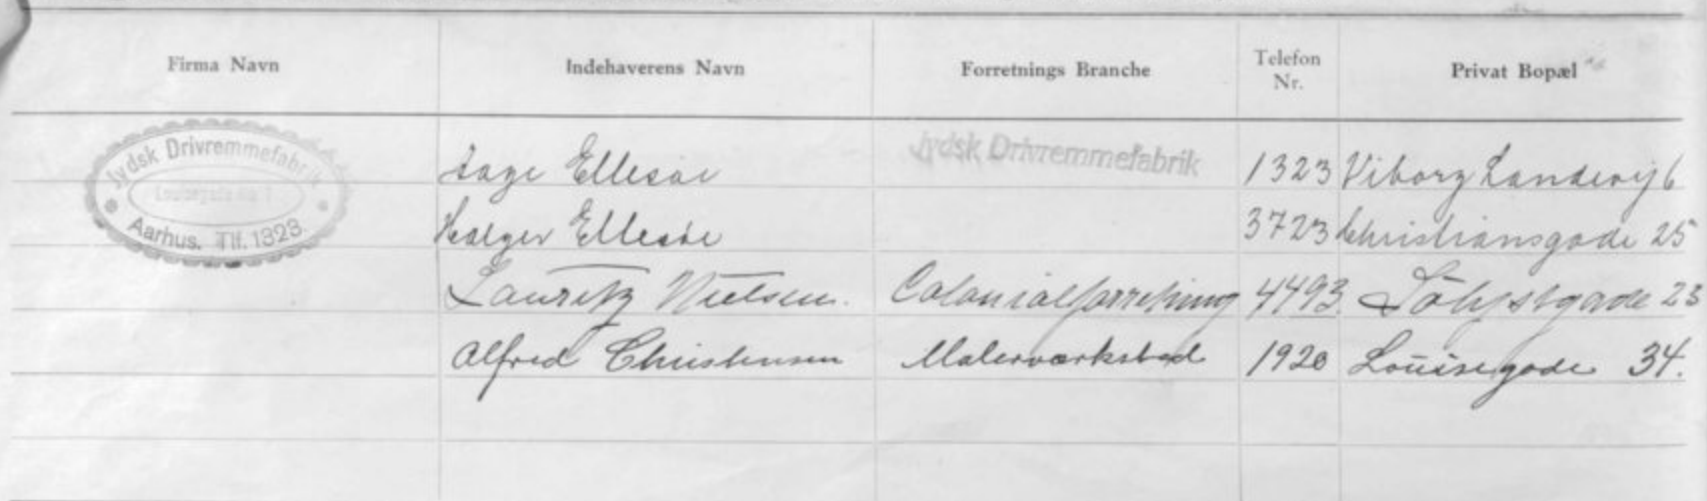 Firma Navn Indehaverens Navn Forretnings Branche Telefon Nr. Privat Bopæl
Jydsk Drivremmefabrik
Aarhus. Tlf. 1323
Aage Ellesøe Jydsk Drivremmefabrik 1323 Viborg Landevej 6
Holger Ellesøe 3723 Christiansgade 25
Lauritz Nielsen. Colonialforretning 4493 23
Alfred Christensen Malerværksted 1920 Louisegade 34.